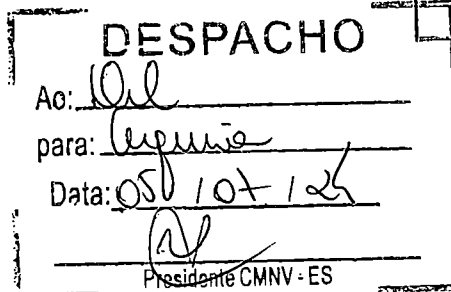 DESPACHO
Ao:
para:
Data: 05 / 07 / 24
Presidente CMNV - ES